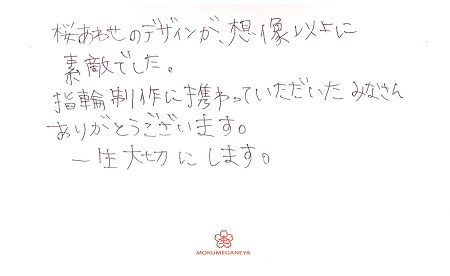 桜あわせのデザインが、想像以上に
素敵でした。
指輪制作に携わっていただいたみなさん
ありがとうございます。
一生大切にします。
MOKUMEGANEYA